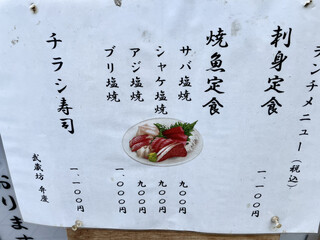 ランチメニュー(税込)
刺身定食 一、一〇〇円
焼魚定食
サバ塩焼 九〇〇円
シャケ塩焼 九〇〇円
アジ塩焼 九〇〇円
ブリ塩焼 一、〇〇〇円
チラシ寿司 一、一〇〇円
武蔵坊 弁慶
おります